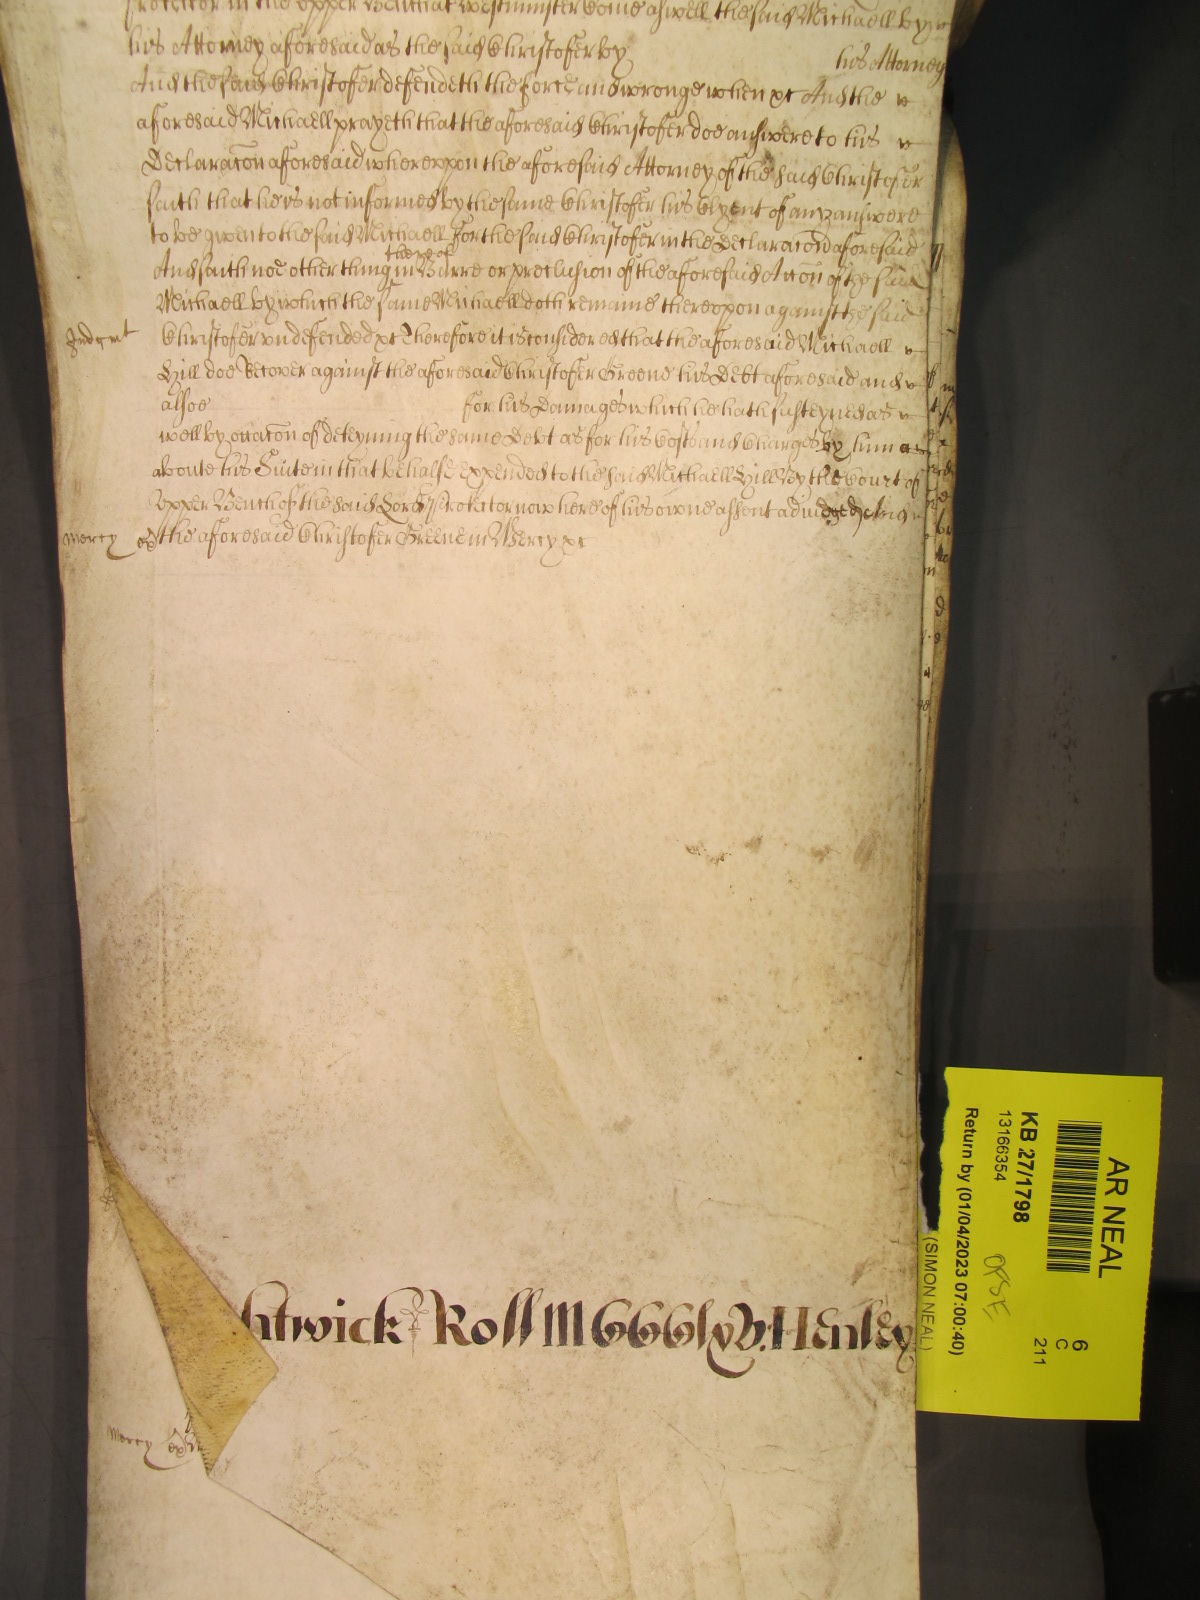 Protector in the upper Bench at Westminster Come aswell the said Michaell by
his Attorney aforesaid as the said Christofer by his Attorney
And the said Christofer defendeth the force and wronge when &c And the
aforesaid Michaell prayeth that the aforesaid Christofer doe answere to his
Declaracon aforesaid whereuppon the aforesaid Attorney of the said Christofer
saith that he is not informed by the same Christofer his Clyent of any answere
to be given to the said Michaell for the said Christofer in the Declaracon aforesaid
And saith noe other thing in Barre or preclusion of the aforesaid Accon of the said
Michaell by which the same Michaell doth remaine thereuppon against the said
Judgmt
Christofer undefended &c Therefore it is considered that the aforesaid Michaell
Hill doe Recover against the aforesaid Christofer Greene his Debt aforesaid and
alsoe for his Damages which he hath susteyned as
well by occacon of deteyning the same Debt as for his Costs and Charges by him
aboute his Suite in that behalfe expended to the said Michaell Hill By the Court of
Upper Bench of the said Lord Protector now here of his owne assent adiudged And
Mercy
the aforesaid Christofer Greene in Mercy &c
htwick Roll M CCC lxv. Henley
Mercy
AR NEAL
KB 27/1798
13166354
Return by (01/04/2023 07:00:40)
(SIMON NEAL)
6
C
211